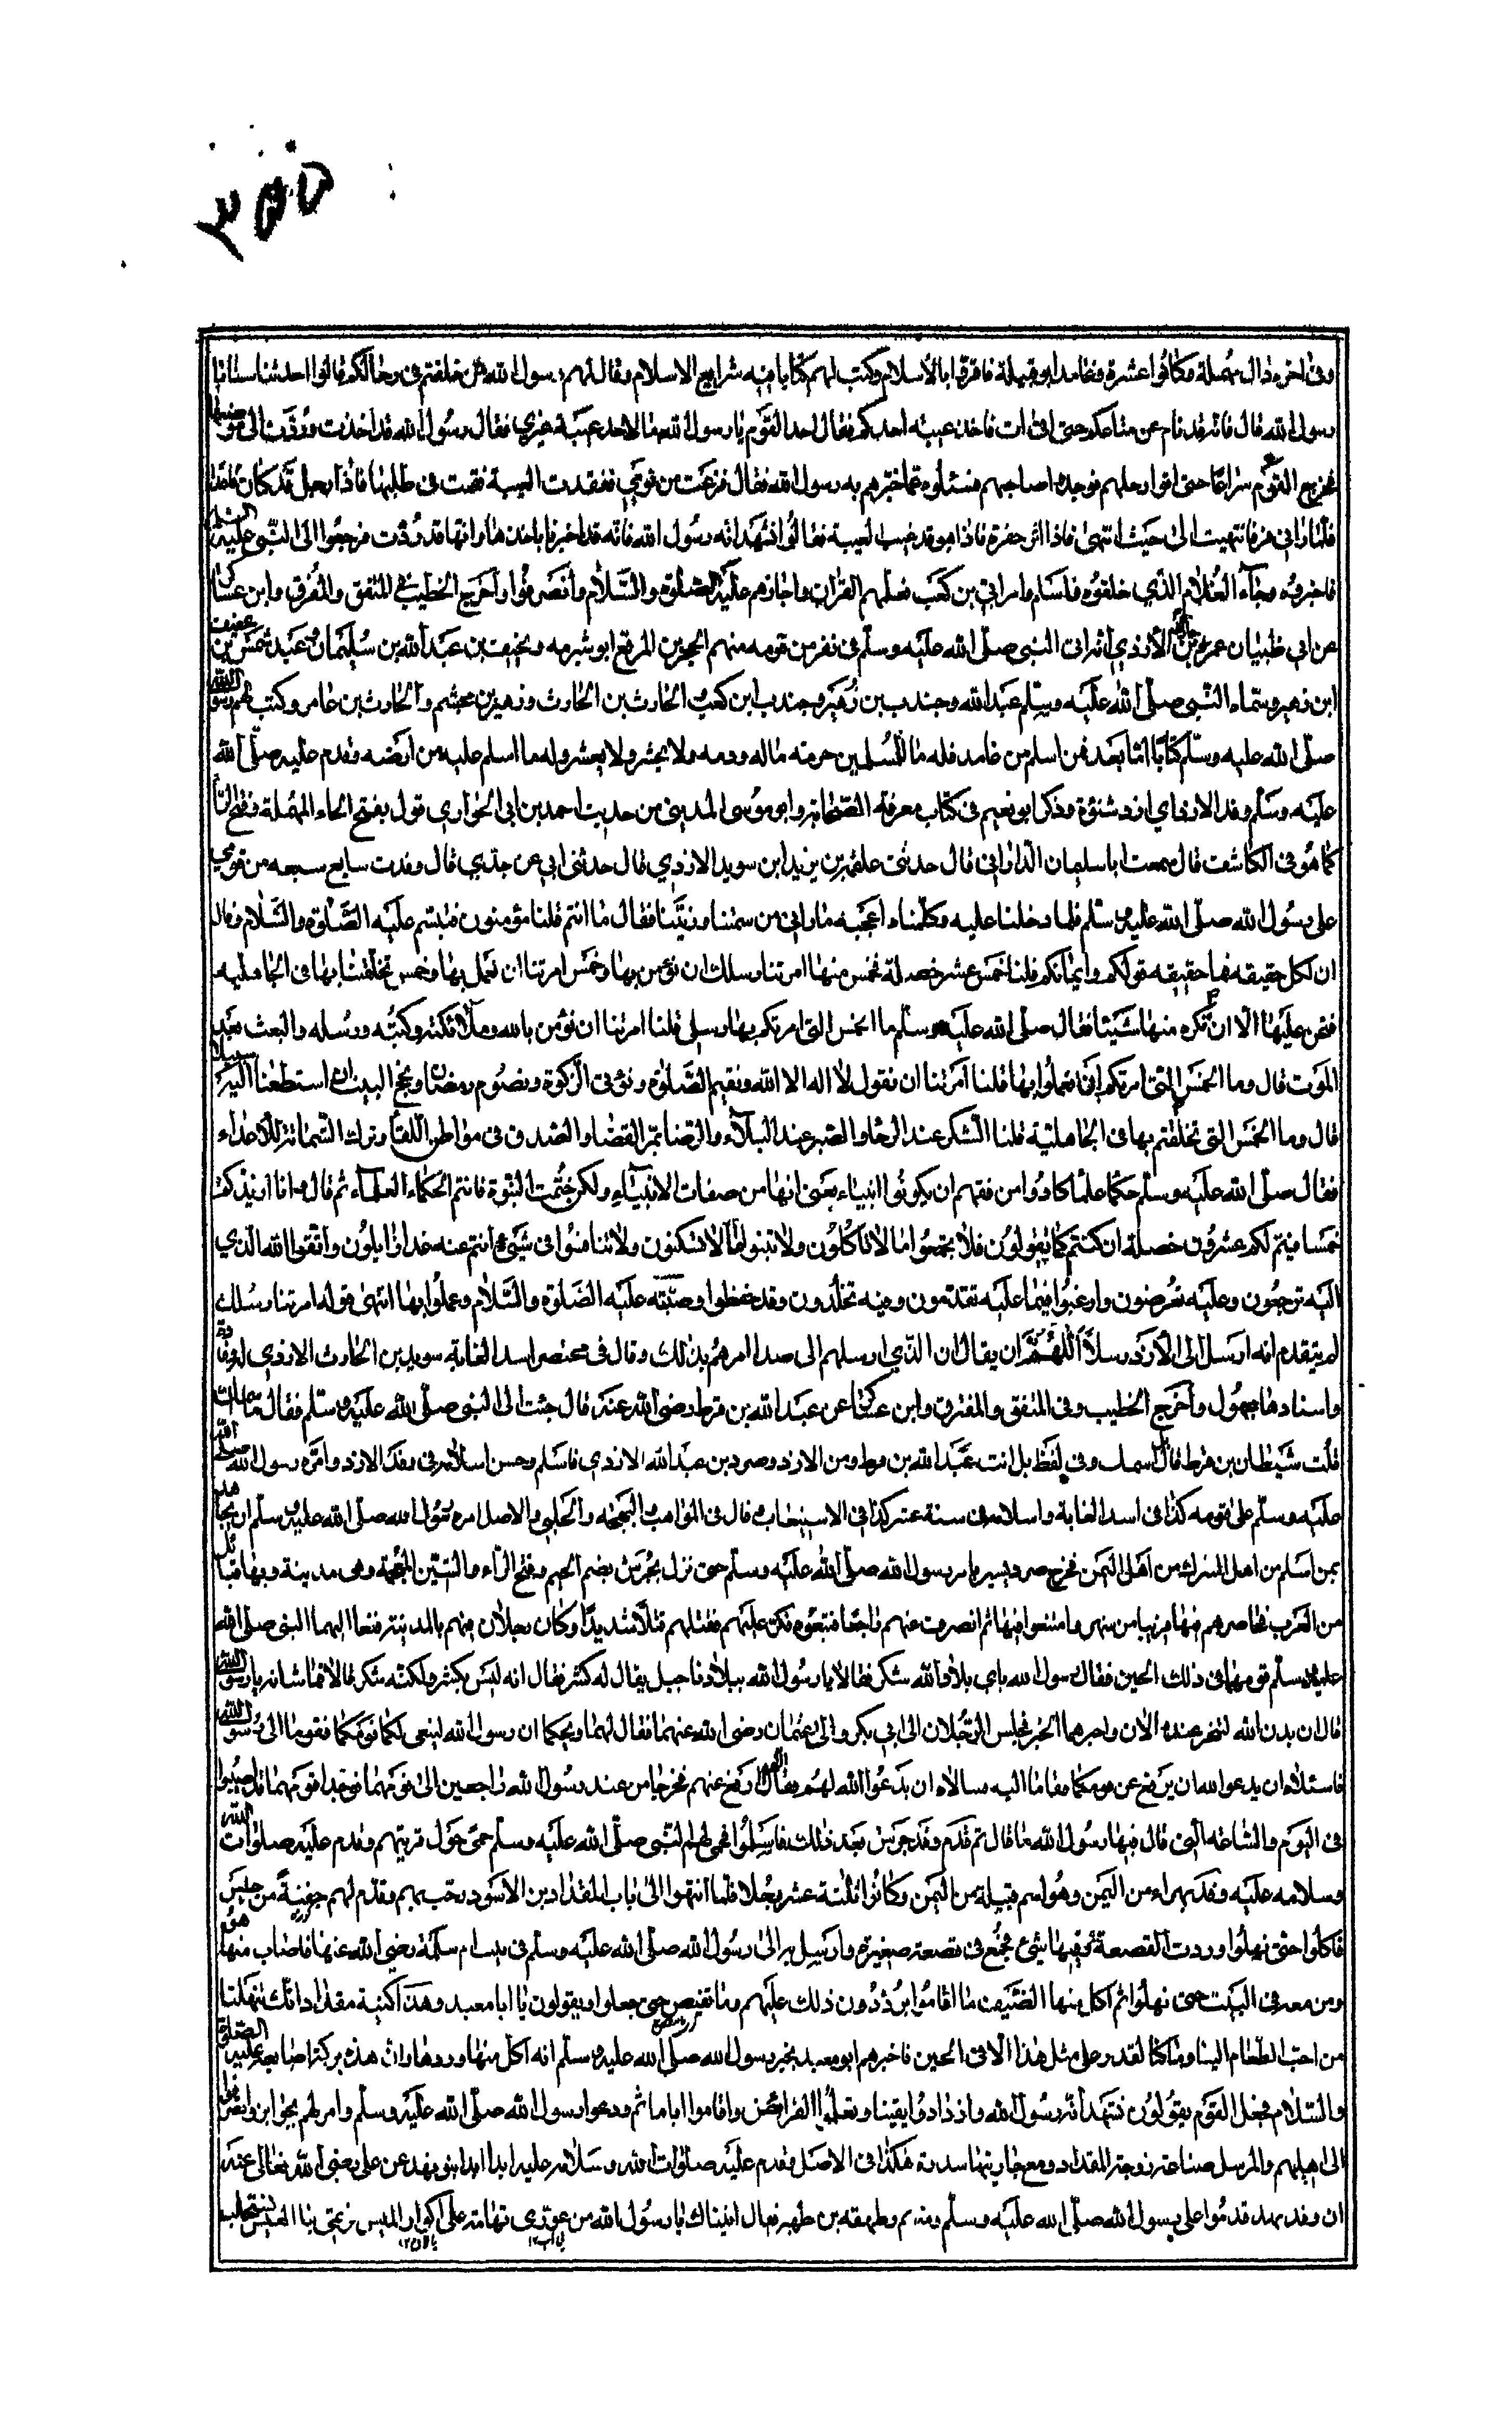 وفى اخره دال مهملة وكانوا عشرة وغامد ابو قبيلة فاقروا بالاسلام وكتب لهم كتابا فيه شرايع الاسلام وقال لهم رسول الله من خلفتم فى رحالكم قالوا احدثنا سنا
رسول الله قال فانه قد نام عن متاعكم حتى اتى ات فاخذ عيبة احدكم فقال احد القوم يا رسول الله ما لاحد عيبة غيري فقال رسول الله قد اخذت وردت الى موضعها
فخرج القوم سراعا حتى اتوا رحلهم فوجدوا صاحبهم فسئلوه عما خبرهم به رسول الله فقال فزعت من نومي ففقدت العيبة فقمت فى طلبها فاذا رجل قد كان قاعدا
فلما رانى فانتهيت الى حيث انتهى فاذا اثر حفرة فاذا هو قد غيب العيبة فقالوا نشهد انه رسول الله فانه قد اخبرنا باخذها وانها قد ردت فرجعوا الى النبي عليه السلام
فاخبروه وجاء الغلام الذي خلفوه فاسلم وامر ابي بن كعب فعلمهم القران واجازهم عليه الصلوة والسلام وانصرفوا واخرج الخطيب في المتفق والمفترق وابن عساكر
عن ابي ظبيان عمير بن الازدي اتى النبي صلى الله عليه وسلم فى نفر من قومه منهم الحجر بن المرقع ابو شبرمه ومخنف بن عبد الله بن سليمان وعبد شمس بن عفيف
ابن زهير وسماه النبي صلى الله عليه وسلم عبد الله وجندب بن زهير وجندب ابن كعب والحارث بن الحارث وزهير بن محشم والحارث بن عامر وكتب لهم رسول الله
صلى الله عليه وسلم كتابا اما بعد فمن اسلم من غامد فله ما للمسلمين حرمة ماله ودمه ولا يحشر ولا يعشر وله ما اسلم عليه من ارضه وقدم عليه صلى الله
عليه وسلم وفد الازد اي ازد شنؤة وذكر ابو نعيم فى كتاب معرفة الصحابة وابو موسى المديني من حديث احمد بن ابي الحواري قول بفتح الحاء المهملة وفتح الراء
كما هو فى الكاشف قال سمعت ابا سليمان الداراني قال حدثنى علقمة بن يزيد ابن سويد الازدي قال حدثنى ابي عن جدي قال وفدت سابع سبعه من قومي
على رسول الله صلى الله عليه وسلم فلما دخلنا عليه وكلمناه اعجبه ما راى من سمتنا وزينا فقال ما انتم قلنا مؤمنون فتبسم عليه الصلوة والسلام وقال
ان لكل حقيقه فما حقيقه قولكم وايمانكم قلنا خمس عشر خصلة خمس منها امرتنا رسلك ان نؤمن بها وخمس امرتنا ان نعمل بها وخمس تخلقنا بها فى الجاهليه
فنحن عليها الا ان تكره منها شيئا فقال صلى الله عليه وسلم ما الخمس التى امرتكم بها رسلي قلنا امرتنا ان نؤمن بالله وملائكته وكتبه ورسله والبعث بعد
الموت قال وما الخمس التى امرتكم ان تعملوا بها قلنا امرتنا ان نقول لا اله الا الله ونقيم الصلوة ونؤتى الزكوة ونصوم رمضان ونحج البيت ان استطعنا اليه سبيلا
قال وما الخمس التى تخلقتم بها فى الجاهلية قلنا الشكر عند الرخا والصبر عند البلاء والرضا بمر القضا والصدق فى مواطن اللقا وترك الشماتة للاعداء
فقال صلى الله عليه وسلم حكما علما كادوا من فقههم ان يكونوا انبياء يعنى انها من صفات الانبياء ولكن ختمت النبوة فانتم الحكماء العلماء ثم قال وانا ازيدكم
خمسا فيتم لكم عشرون خصلة ان كنتم كما تقولون فلا تجمعوا ما لا تاكلون ولا تبنوا ما لا تسكنون ولا تنافسوا فى شيء انتم عنه غدا زايلون واتقوا الله الذي
اليه ترجعون وعليه تعرضون وارغبوا فيما عليه تقدمون وفيه تخلدون وقد حفظوا وصيته عليه الصلوة والسلام وعملوا بها انتهى قوله امرتنا رسلك
لم يتقدم انه ارسل الى الازد رسلا اللهم ان يقال ان الذي ارسلهم الى صدا امرهم بذلك وقال فى مختصر اسد الغابة سويد بن الحارث الازدي له وفادة
واسنادها مجهول واخرج الخطيب وفى المتفق والمفترق وابن عساكر عن عبد الله بن قرط رضى الله عنه قال جئت الى النبي صلى الله عليه وسلم فقال ما اسمك
قلت شيطان بن قرط قال وفى لفظ بل انت عبد الله بن قرط ومن الازد وصرد بن عبد الله الازدي فاسلم وحسن اسلامه فى وفد الازد وامره رسول الله صلى الله
عليه وسلم على قومه كذا فى اسد الغابة واسلامه فى سنة عشر كذا فى الاستيعاب قال فى المواهب البهجة والحلبي والاصل امره رسول الله صلى الله عليه وسلم ان يجاهد
بمن اسلم من اهل الشرك من اهل اليمن فخرج صرد يسير بامر رسول الله صلى الله عليه وسلم حتى نزل بجرش بضم الجيم وفتح الراء والشين المعجمة وهى مدينة وبها قبائل
من العرب فحاصرهم فيها قريبا من شهر وامتنعوا فيها ثم انصرف عنهم راجعا فتبعوه فكر عليهم فقتلهم قتلا شديدا وكان رجلان منهم بالمدينة فنعا اليهما النبي صلى الله
عليه وسلم قومهما فى ذلك الحين فقال رسول الله باي بلاد الله شكر فقالا يا رسول الله ببلادنا جبل يقال له كشر فقال انه ليس بكشر ولكنه شكر قالا فما شانه يا رسول الله
قال ان بدن الله لتنحر عنده الان واخبرهما الخبر فجلس الرجلان الى ابي بكر والى عثمان رضى الله عنهما فقال لهما ويحكما ان رسول الله لينعى لكما قومكما فقوما الى رسول الله
فاسئلاه ان يدعو الله ان يرفع عن قومكما فقاما اليه فسالاه ان يدعوا الله لهم فقال اللهم ارفع عنهم فخرجا من عند رسول الله راجعين الى قومهما فوجدا قومهما قد اصيبوا
فى اليوم والساعه التى قال فيها رسول الله ما قال ثم قدم وفد جرش بعد ذلك فاسلموا فحمى لهم النبي صلى الله عليه وسلم حمى حول قريتهم وقدم عليه صلوات الله
وسلامه عليه وفد بهراء من اليمن وهو اسم قبيلة من اليمن وكانوا ثلثة عشر رجلا فلما انتهوا الى باب المقداد بن الاسود رحب بهم وقدم لهم جفنة من حيس
فاكلوا حتى نهلوا وردت القصعة وفيها شيء فجمع فى قصعة صغيرة وارسل بها الى رسول الله صلى الله عليه وسلم فى بيت ام سلمة رضى الله عنها فاصاب منها هو
ومن معه فى البيت حتى نهلوا ثم اكل منها الضيف ما اقاموا يرددون ذلك عليهم وما تغيض حتى جعلوا ويقولون يا ابا معبد وهذه كنية مقداد انك تنهلنا
من احب الطعام الينا وما كنا لنقدر على مثل هذا الا فى الحين فاخبرهم ابو معبد بخبر رسول الله صلى الله عليه وسلم انه اكل منها وردها وان هذه بركة اصابعه عليه الصلوة
والسلام فجعل القوم يقولون نشهد انه رسول الله وازدادوا يقينا وتعلموا الفرائض واقاموا اياما ثم ودعوا رسول الله صلى الله عليه وسلم وامر لهم بجوائز وانصرفوا
الى اهليهم والمرسل ضباعة زوجة المقداد ومع جاريتها سدرة هكذا فى الاصل وقدم عليه صلوات الله وسلامه عليه ابدا ابدا بنو نهد عن على رضى الله تعالى عنه
ان وفد نهد قدموا على رسول الله صلى الله عليه وسلم ومنهم وطهفة بن زهير فقال اتيناك يا رسول الله من غوري تهامة على اكوار الميس ترتمى بنا العيس نستحلب